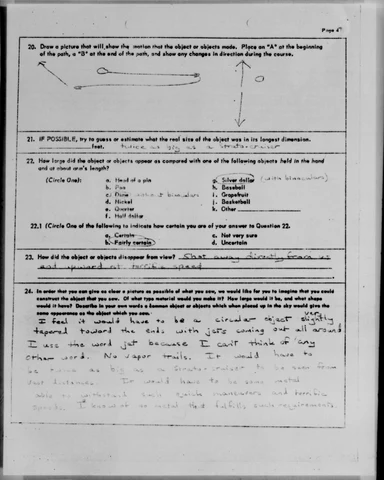 Page 4
20. Draw a picture that will show the motion that the object or objects made. Place an "A" at the beginning
of the path, a "B" at the end of the path, and show any changes in direction during the course.
21. IF POSSIBLE, try to guess or estimate what the real size of the object was in its longest dimension.
feet. twice as big as a Stratocruiser
22. How large did the object or objects appear as compared with one of the following objects held in the hand
and at about arm's length?
(Circle One): a. Head of a pin g. Silver dollar (with binoculars)
b. Pea h. Baseball
c. Dime without binoculars i. Grapefruit
d. Nickel j. Basketball
e. Quarter k. Other
f. Half dollar
22.1 (Circle One of the following to indicate how certain you are of your answer to Question 22.
a. Certain c. Not very sure
b. Fairly certain d. Uncertain
23. How did the object or objects disappear from view? Shot away directly from us
and upward at terrific speed
24. In order that you can give as clear a picture as possible of what you saw, we would like for you to imagine that you could
construct the object that you saw. Of what type material would you make it? How large would it be, and what shape
would it have? Describe in your own words a common object or objects which when placed up in the sky would give the
same appearance as the object which you saw.
I feel it would have to be a circular object very slightly
tapered toward the ends with jets coming out all around
I use the word jet because I can't think of any
other word. No vapor trails. It would have to
be twice as big as a Stratocruiser to be seen from
that distance. It would have to be some metal
able to withstand such quick maneuvers and terrific
speeds. I know of no metal that fulfills such requirements.